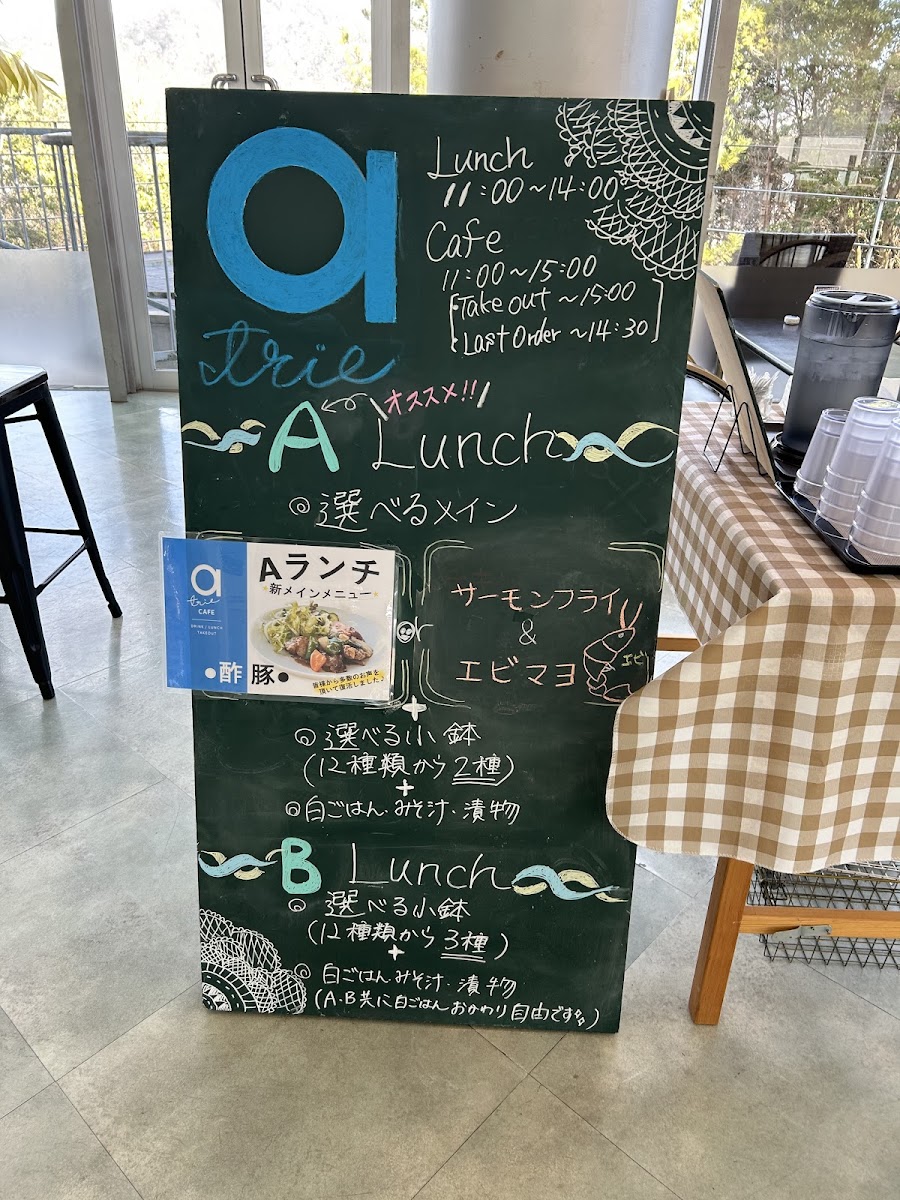 a
trie
Lunch
11:00～14:00
Cafe
11:00～15:00
Take out ～15:00
Last Order ～14:30
オススメ!!
A Lunch
◎選べるメイン
a
trie
CAFE
DRINK / LUNCH
TAKEOUT
Aランチ
新メインメニュー
•酢豚•
皆様から多数のお声を
頂いて復活しました。
or
サーモンフライ
&
エビマヨ
エビ
+
◎選べる小鉢
(12種類から2種)
+
◎白ごはん・みそ汁・漬物
B Lunch
◎選べる小鉢
(12種類から3種)
+
◎白ごはん・みそ汁・漬物
(A・B共に白ごはんおかわり自由です)